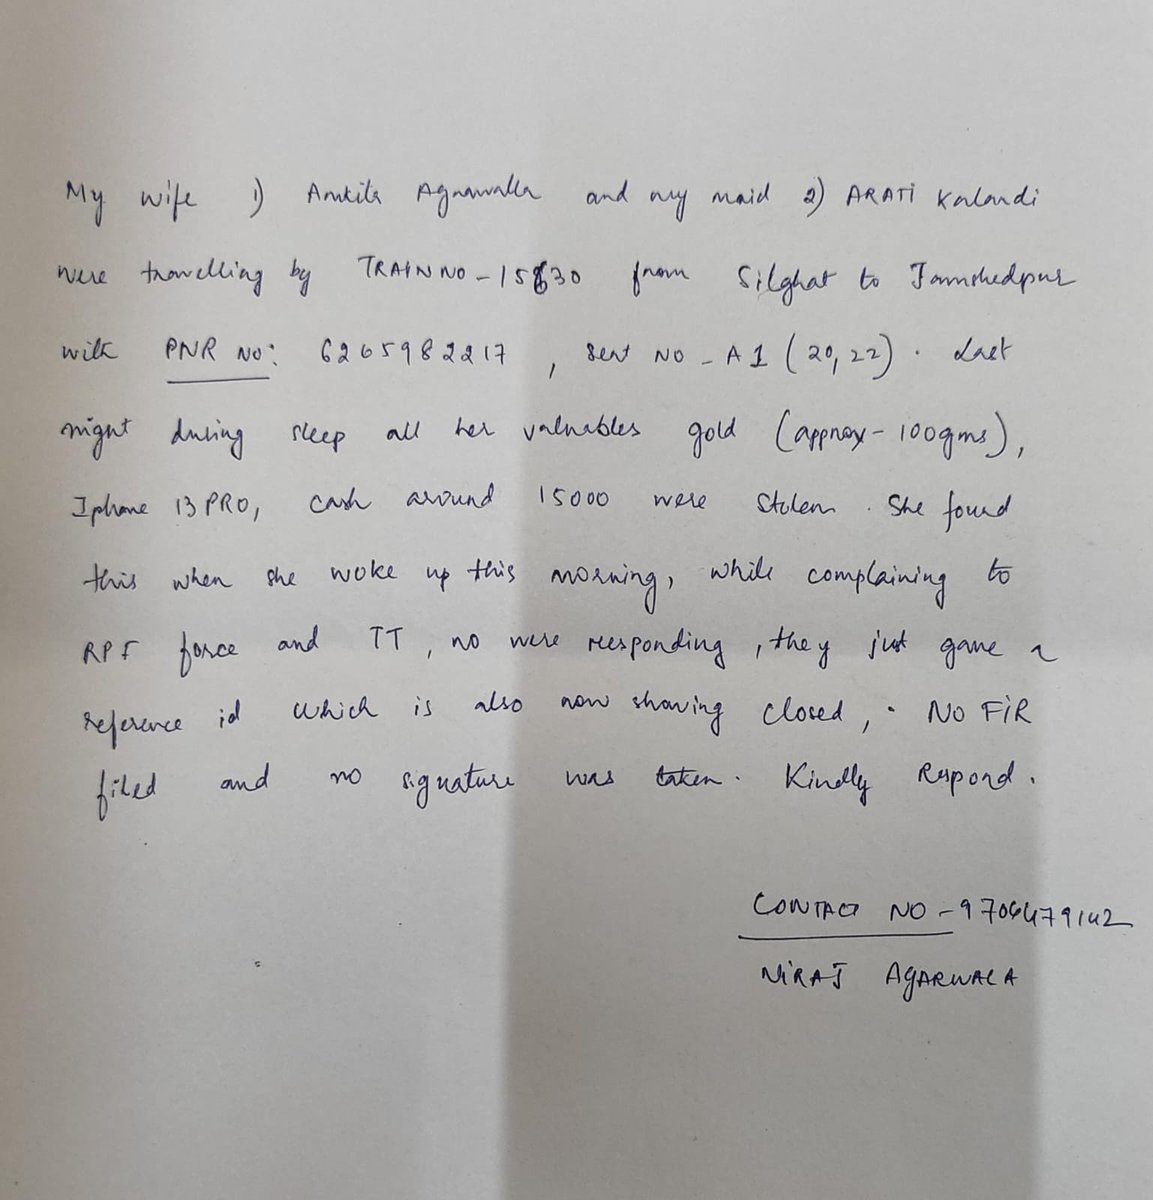 My wife 1) Ankita Agrawalla and my maid 2) ARATI Kalandi
were travelling by TRAIN NO - 15630 from Silghat to Jamshedpur
with PNR NO: 6265982217 , seat NO - A1 (20,22) . Last
night during sleep all her valuables gold (approx - 100gms),
Iphone 13 PRO, cash around 15000 were stolen . She found
this when she woke up this morning, while complaining to
RPF force and TT , no were responding , they just gave a
reference id which is also now showing closed , . NO FIR
filed and no signature was taken . Kindly Respond .
CONTACT NO - 9706479142
NIRAJ AGARWALA